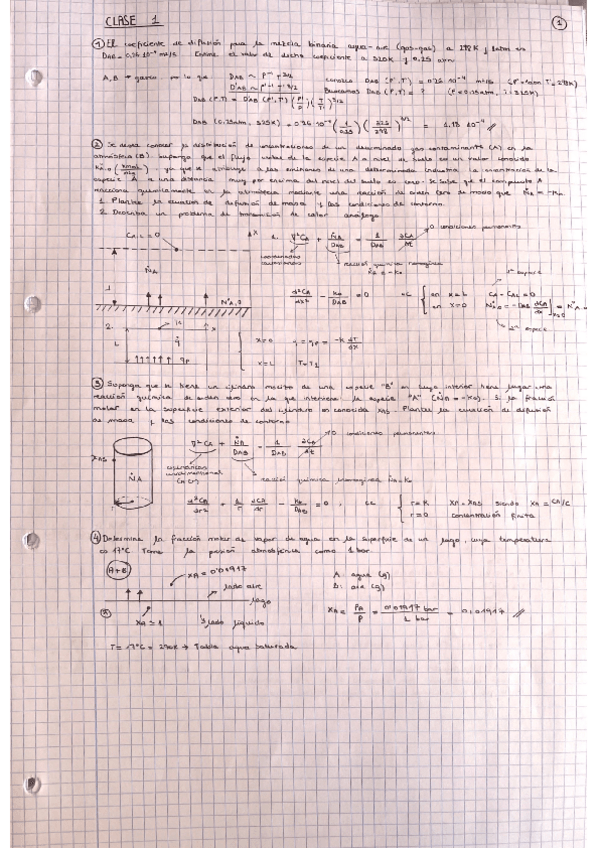 CLASE 1
1
① El coeficiente de difusión para la mezcla binaria agua-aire (gas-gas) a 298K y 1atm es
DAB = 0,26 10⁻⁴ m²/s Estime el valor de dicho coeficiente a 325K y 0,25 atm
A, B → gases por lo que DAB ~ P⁻¹ T³/²
DAB (P,T) = DAB (P',T') (P'/P) (T/T')³/²
Buscamos DAB (P,T) = ? (P = 0.25atm, T = 325K)
DAB (0.25atm, 325K) = 0.26 10⁻⁴ (1/0.25) (325/298)³/² = 1.18 10⁻⁴
② Se desea conocer la distribución de concentraciones de un determinado gas contaminante (A) en la
atmósfera (B). Suponga que el flujo molar de la especie A a nivel de suelo es un valor conocido
ya que se atribuye a las emisiones de una determinada industria. La concentración de la
especie A a una distancia muy por encima del nivel del suelo es cero. Se sabe que el compuesto A
reacciona químicamente en la atmósfera mediante una reacción de orden cero de modo que ṄA = -K₀.
1. Plantee la ecuación de difusión de masa y las condiciones de contorno.
2. Describa un problema de transmisión de calor análogo
CA,L = 0
1. ∇²CA + ṄA/DAB = 1/DAB ∂CA/∂t
→0 condiciones permanentes
coordenadas cartesianas
reacción química homogénea
ṄA = -K₀
ṄA
d²CA/dx² - K₀/DAB = 0
CC
en x=L CA = CA,L = 0
1ª especie
2ª especie
2.
L
x=0 q = q₀ = -K dT/dx
x=L T=TL
③ Suponga que se tiene un cilindro macizo de una especie "B" en cuyo interior tiene lugar una
reacción química de orden cero en la que interviene la especie "A" (ṄA = -K₀). Si la fracción
molar en la superficie exterior del cilindro es conocida XAS. Plantee la ecuación de difusión
de masa y las condiciones de contorno
XAS
ṄA
∇²CA + ṄA/DAB = 1/DAB ∂CA/∂t
→0 condiciones permanentes
cilíndricas unidimensional
CA (r)
reacción química homogénea ṄA = -K₀
d²CA/dr² + 1/r dCA/dr - K₀/DAB = 0 , CC
r=R XA = XAS siendo XA = CA/C
r=0 concentración finita
④ Determine la fracción molar de vapor de agua en la superficie de un lago, cuya temperatura
es 17°C Tome la presión atmosférica como 1 bar
A+B
XA = 0'01917
lado aire
lago
XA ≈ 1
lado líquido
A: agua (g)
B: aire (g)
XA = PA/P = 0'01917 bar / 1 bar = 0,01917
T = 17°C = 290K → Tabla agua saturada